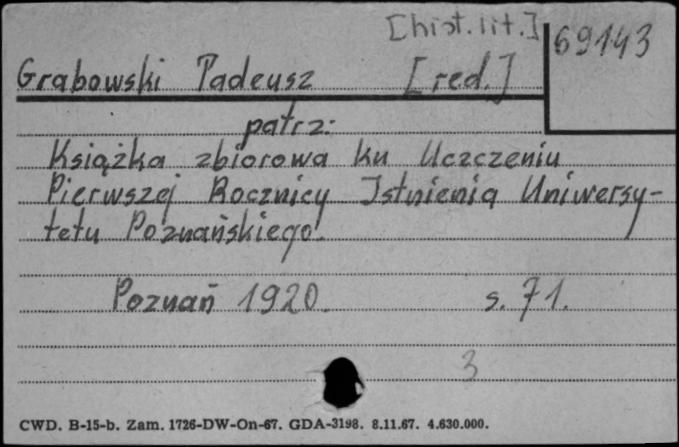 [hist. lit.]
69143
Grabowski Tadeusz [red.]
patrz:
Książka zbiorowa ku Uczczeniu
Pierwszej Rocznicy Istnienia Uniwersy-
tetu Poznańskiego.
Poznań 1920. s. 71.
3
CWD. B-15-b. Zam. 1726-DW-On-67. GDA-3198. 8.11.67. 4.630.000.